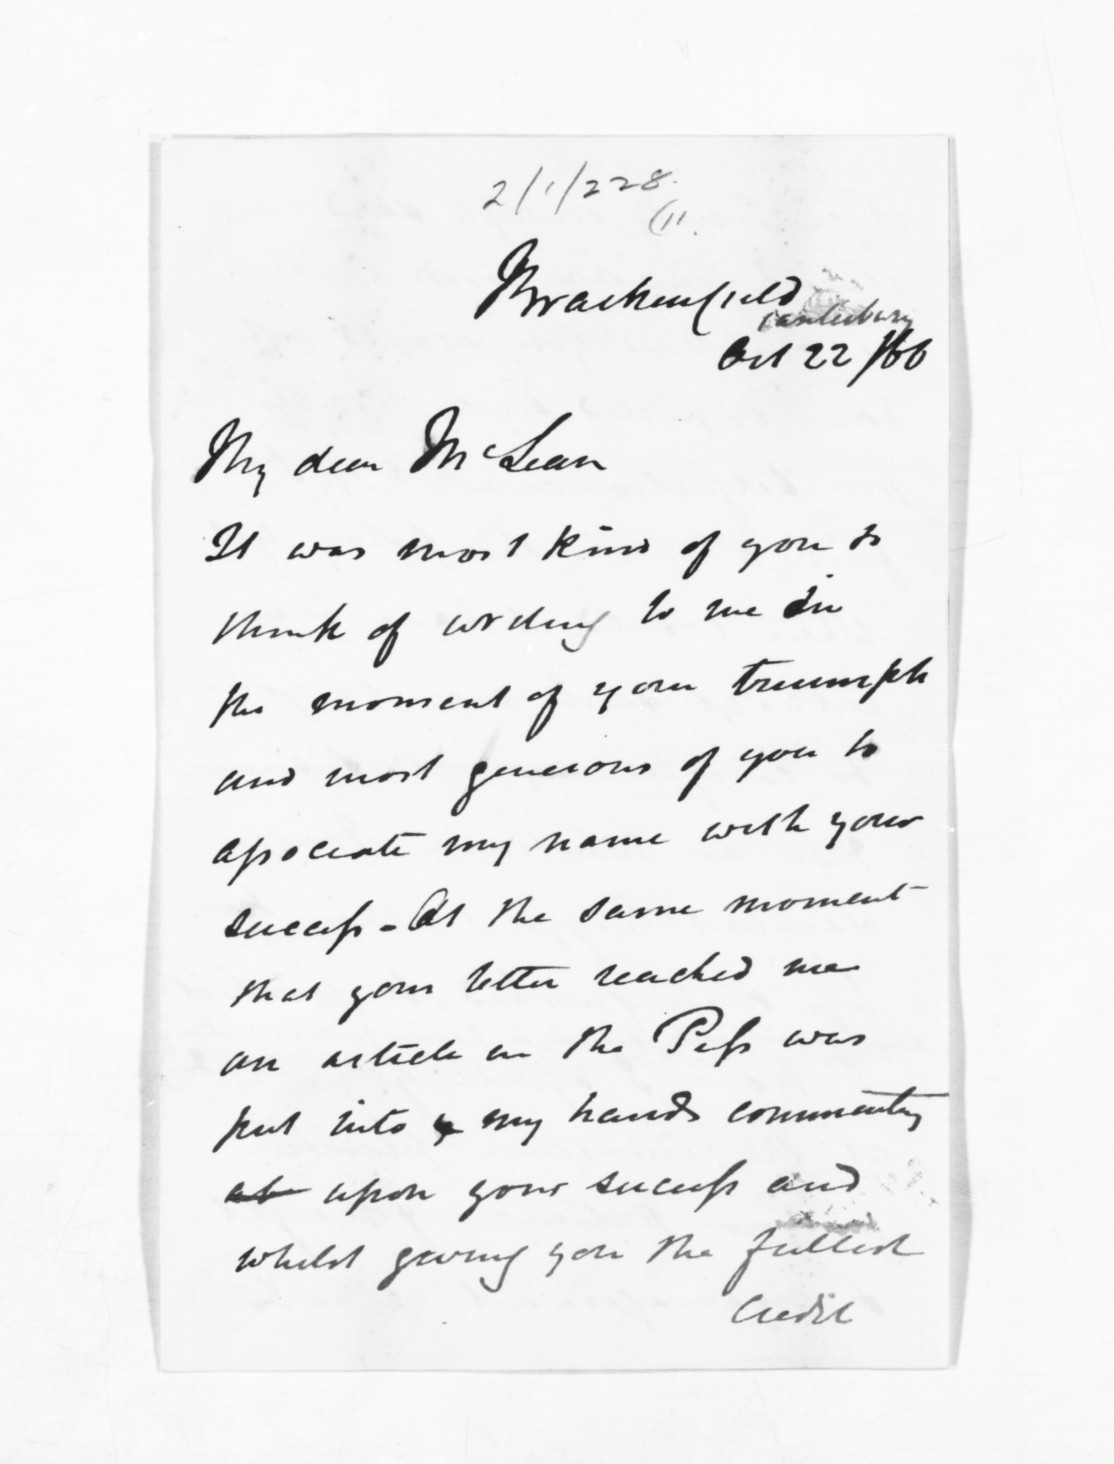 2/1/228.
(11.
Brackenfield
Canterbury
Oct 22/66
My dear McLean
It was most kind of you to
think of writing to me in
the moment of your triumph
and most generous of you to
associate my name with your
success - At the same moment
that your letter reached me
an article in the Press was
put into my hands commenting
at upon your success and
whilst giving you the fullest
Credit